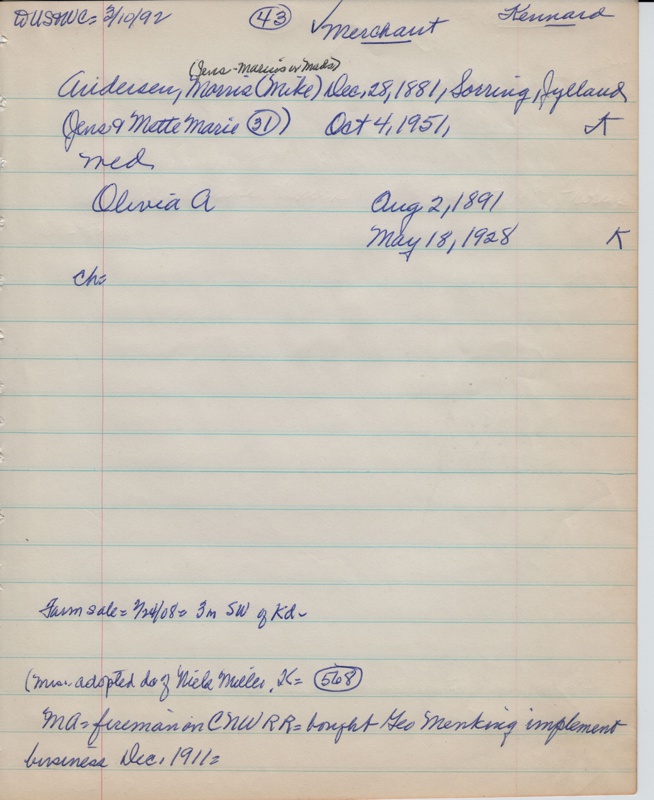 DUSAWC= 3/10/92 (43) ✓ Merchant Kennard
(Jens-Marius or Mads)
Andersen, Morris (Mike) Dec, 28, 1881, Sorring, Jylland
(Jens & Mette Marie (31)) Oct 4, 1951, K
med
Olivia A Aug 2, 1891
May 18, 1928 K
ch=
Farm sale= /08= 3m SW of Kd-
(Mrs. adopted da of Niels Miller, K= (568)
MA= fireman on CNW RR= bought Geo Menking implement
business Dec. 1911=